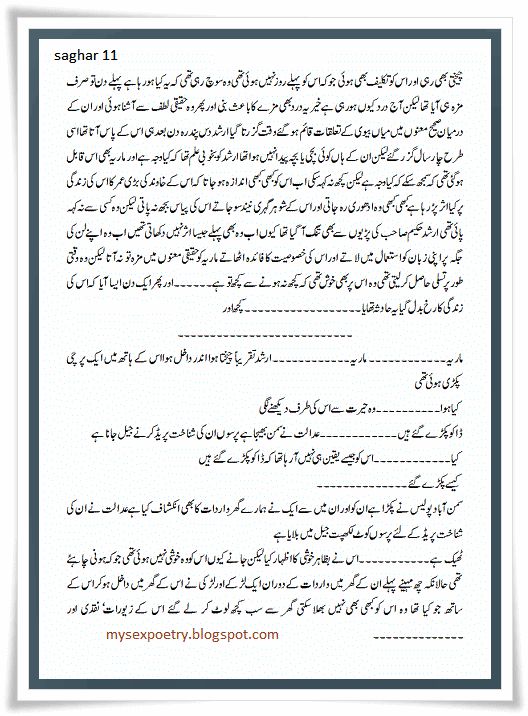 saghar 11
چیختی بھی رہی اور اس کو تکلیف بھی ہوئی جو کہ اس کو پہلے روز نہیں ہوئی تھی وہ سوچ رہی تھی کہ یہ کیا ہو رہا ہے پہلے دن تو صرف
مزہ ہی آیا تھا لیکن آج درد کیوں ہو رہی ہے خیر یہ درد بھی مزے کا باعث بنی اور پھر وہ حقیقی لطف سے آشنا ہوئی اور ان کے
درمیان صحیح معنوں میں میاں بیوی کے تعلقات قائم ہو گئے وقت گزرتا گیا ارشد دس پندرہ دن بعد ہی اس کے پاس آتا تھا اسی
طرح چار سال گزر گئے لیکن ان کے ہاں کوئی بچی یا بچہ پیدا نہیں ہوا تھا ارشد کو بخوبی علم تھا کہ کیا وجہ ہے اور ماریہ بھی اس قابل
ہو گئی تھی کہ سمجھ سکے کہ کیا وجہ ہے لیکن کچھ نہ کہہ سکی اب اس کو کبھی کبھی اندازہ ہو جاتا کہ اس کے خاوند کی بڑی عمر کا اس کی زندگی
پر کیا اثر پڑ رہا ہے کبھی کبھی وہ ادھوری رہ جاتی اور اس کے شوہر گہری نیند سو جاتے اس کی پیاس بجھ نہ پاتی لیکن وہ کسی سے نہ کہہ
پاتی تھی ارشد حکیم صاحب کی پڑیوں سے بھی تنگ آ گیا تھا کیوں اب وہ بھی پہلے جیسا اثر نہیں دکھاتی تھیں اب وہ اپنے لن کی
جگہ پر اپنی زبان کو استعمال میں لاتے اور اس کی خصوصیت کا فائدہ اٹھاتے ماریہ کو حقیقی معنوں میں مزہ تو نہ آتا لیکن وہ وقتی
طور پر تسلی حاصل کر لیتی تھی وہ اس پر بھی خوش تھی کہ کچھ نہ ہونے سے کچھ تو ہے۔۔۔۔۔۔اور پھر ایک دن ایسا آیا کہ اس کی
زندگی کا رخ بدل گیا یہ حادثہ تھا یا۔۔۔۔۔۔۔۔۔۔۔۔۔۔۔۔۔۔کچھ اور
۔۔۔۔۔۔۔۔۔۔۔۔۔۔۔۔۔۔۔۔۔۔۔۔۔
ماریہ۔۔۔۔۔۔۔۔۔۔۔۔ ماریہ۔۔۔۔۔۔۔۔۔۔۔۔ارشد تقریباً چیختا ہوا اندر داخل ہوا اس کے ہاتھ میں ایک پرچی
پکڑی ہوئی تھی
کیا ہوا۔۔۔۔۔۔۔۔۔۔وہ حیرت سے اس کی طرف دیکھنے لگی
ڈاکو پکڑے گئے ہیں۔۔۔۔۔۔۔۔۔۔۔عدالت نے سمن بھیجا ہے پرسوں ان کی شناخت پریڈ کرنے جیل جانا ہے
کیا۔۔۔۔۔۔۔۔۔۔۔اس کو جیسے یقین ہی نہیں آ رہا تھا کہ ڈاکو پکڑے گئے ہیں
کیسے پکڑے گئے۔۔۔۔۔۔۔۔۔۔۔۔۔
سمن آباد پولیس نے پکڑا ہے ان کو اور ان میں سے ایک نے ہمارے گھر واردات کا بھی انکشاف کیا ہے عدالت نے ان کی
شناخت پریڈ کے لئے پرسوں کوٹ لکھپت جیل میں بلایا ہے
ٹھیک ہے۔۔۔۔۔۔۔۔۔۔اس نے بظاہر خوشی کا اظہار کیا لیکن جانے کیوں اس کو وہ خوشی نہیں ہوئی تھی جو کہ ہونی چاہئے
تھی حالانکہ چھ مہینے پہلے ان کے گھر میں واردات کے دوران ایک لڑکے اور لڑکی نے اس کے گھر میں داخل ہو کر اس کے
ساتھ جو کیا تھا وہ اس کو کبھی بھی نہیں بھلا سکتی گھر سے سب کچھ لوٹ کر لے گئے اس کے زیورات نقدی اور
۔۔۔۔۔۔۔۔۔۔۔۔۔
mysexpoetry.blogspot.com